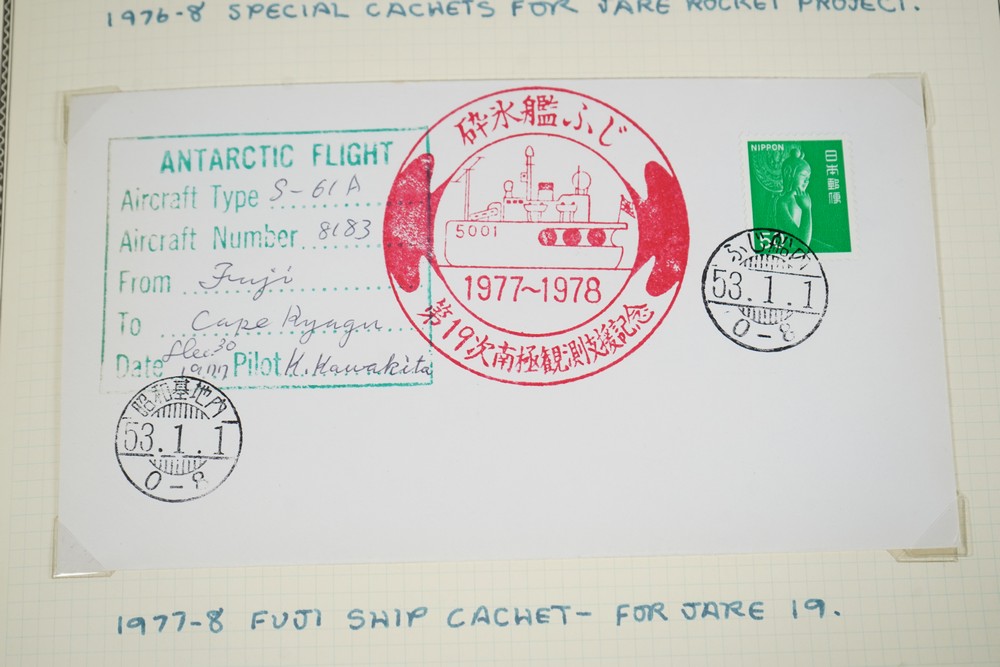 1976-8 SPECIAL CACHETS FOR JARE ROCKET PROJECT.
ANTARCTIC FLIGHT
Aircraft Type S-61A
Aircraft Number 8183
From Fuji
To Cape Ryugu
Date Dec 30 1977 Pilot K. Kawakita
砕氷艦ふじ
5001
1977~1978
第19次南極観測支援記念
NIPPON
日本郵便
5
ふじ船内
53.1.1
0-8
昭和基地内
53.1.1
0-8
1977-8 FUJI SHIP CACHET- FOR JARE 19.